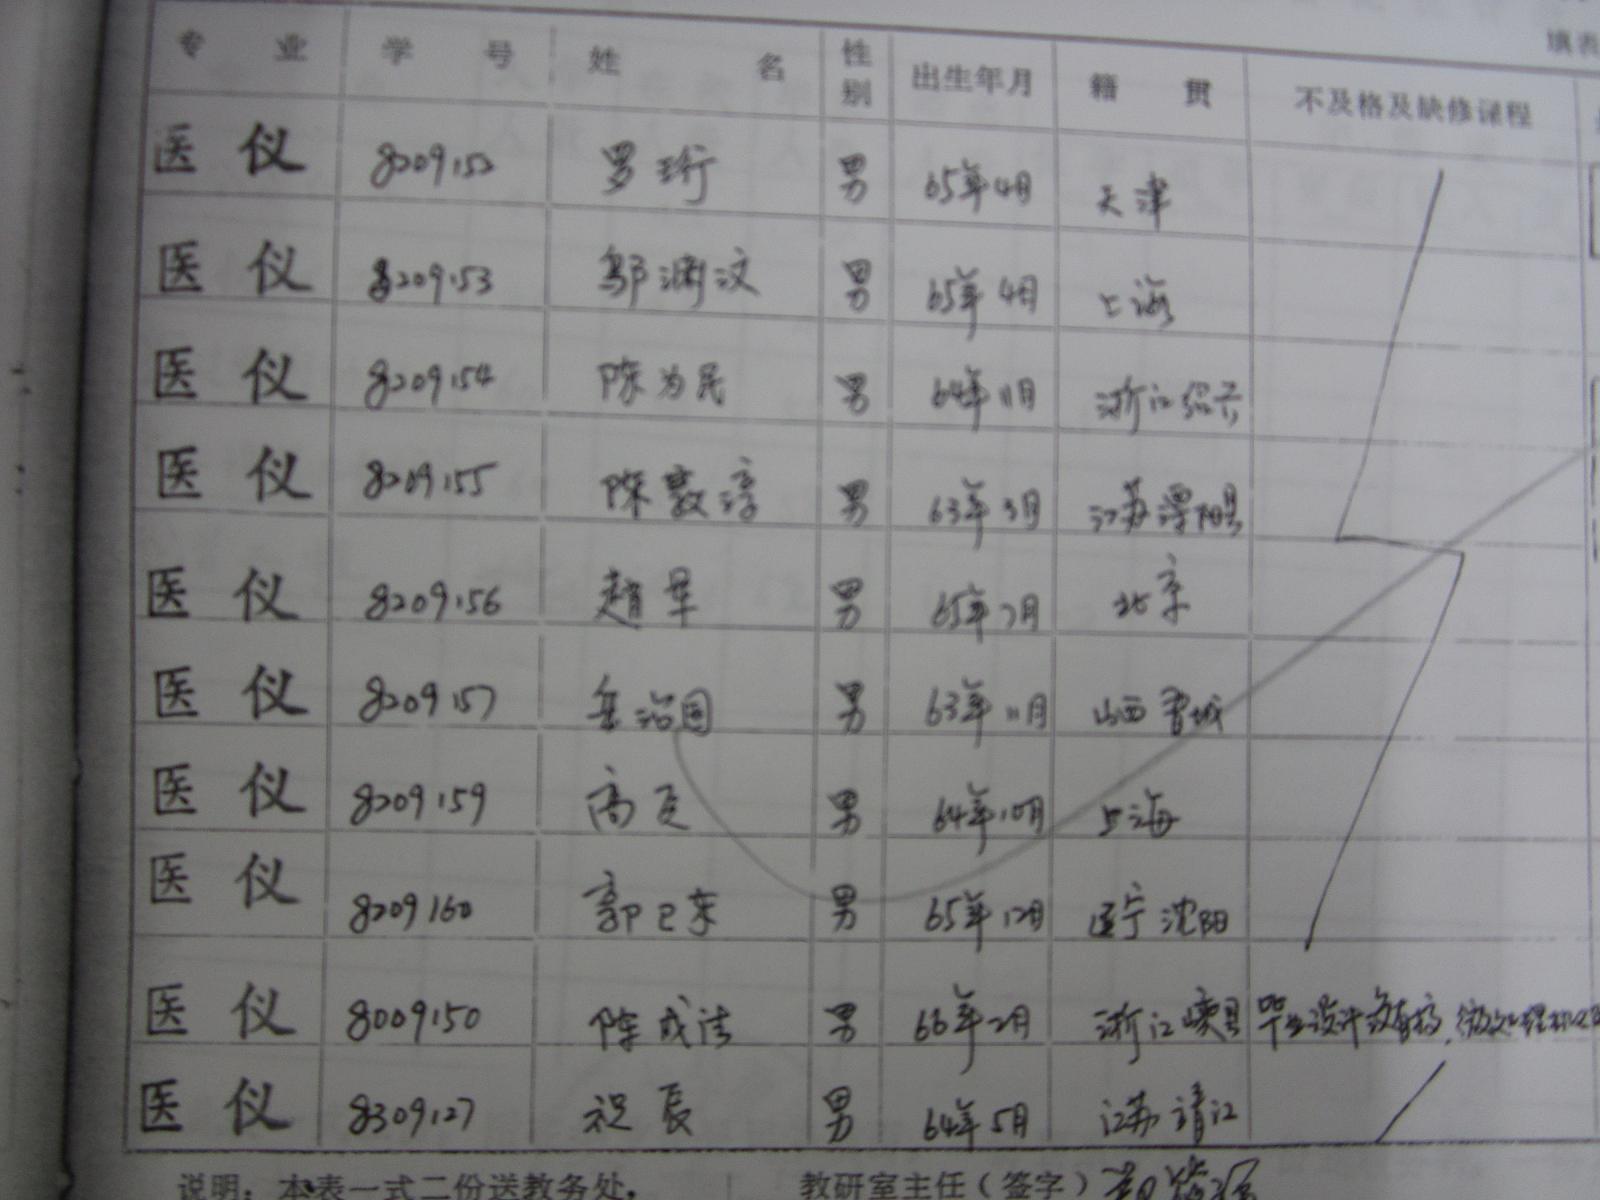 填表
专业 学号 姓名 性别 出生年月 籍贯 不及格及缺修课程
医仪 8209152 罗珩 男 65年4月 天津
医仪 8209153 邬渊文 男 65年4月 上海
医仪 8209154 陈为民 男 64年11月 浙江绍兴
医仪 8209155 陈敦淳 男 63年3月 江苏溧阳县
医仪 8209156 赵军 男 65年2月 北京
医仪 8209157 岳治国 男 63年11月 山西晋城
医仪 8209159 高 男 64年10月 上海
医仪 8209160 郭卫东 男 65年12月 辽宁沈阳
医仪 8009150 陈成法 男 66年2月 浙江嵊县 毕业设计
医仪 8309127 祝辰 男 64年5月 江苏靖江
说明：本表一式二份送教务处。 教研室主任（签字）